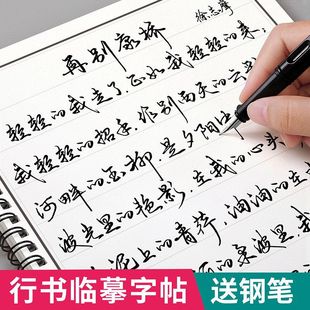 再别康桥
徐志摩
轻轻的我走了,正如我轻轻的来;
我轻轻的招手,作别西天的云
河畔的金柳,是夕阳中
波光里的艳影,在我的心头
泥上的青荇,油油的
的柔波里
行书临摹字帖
送钢笔